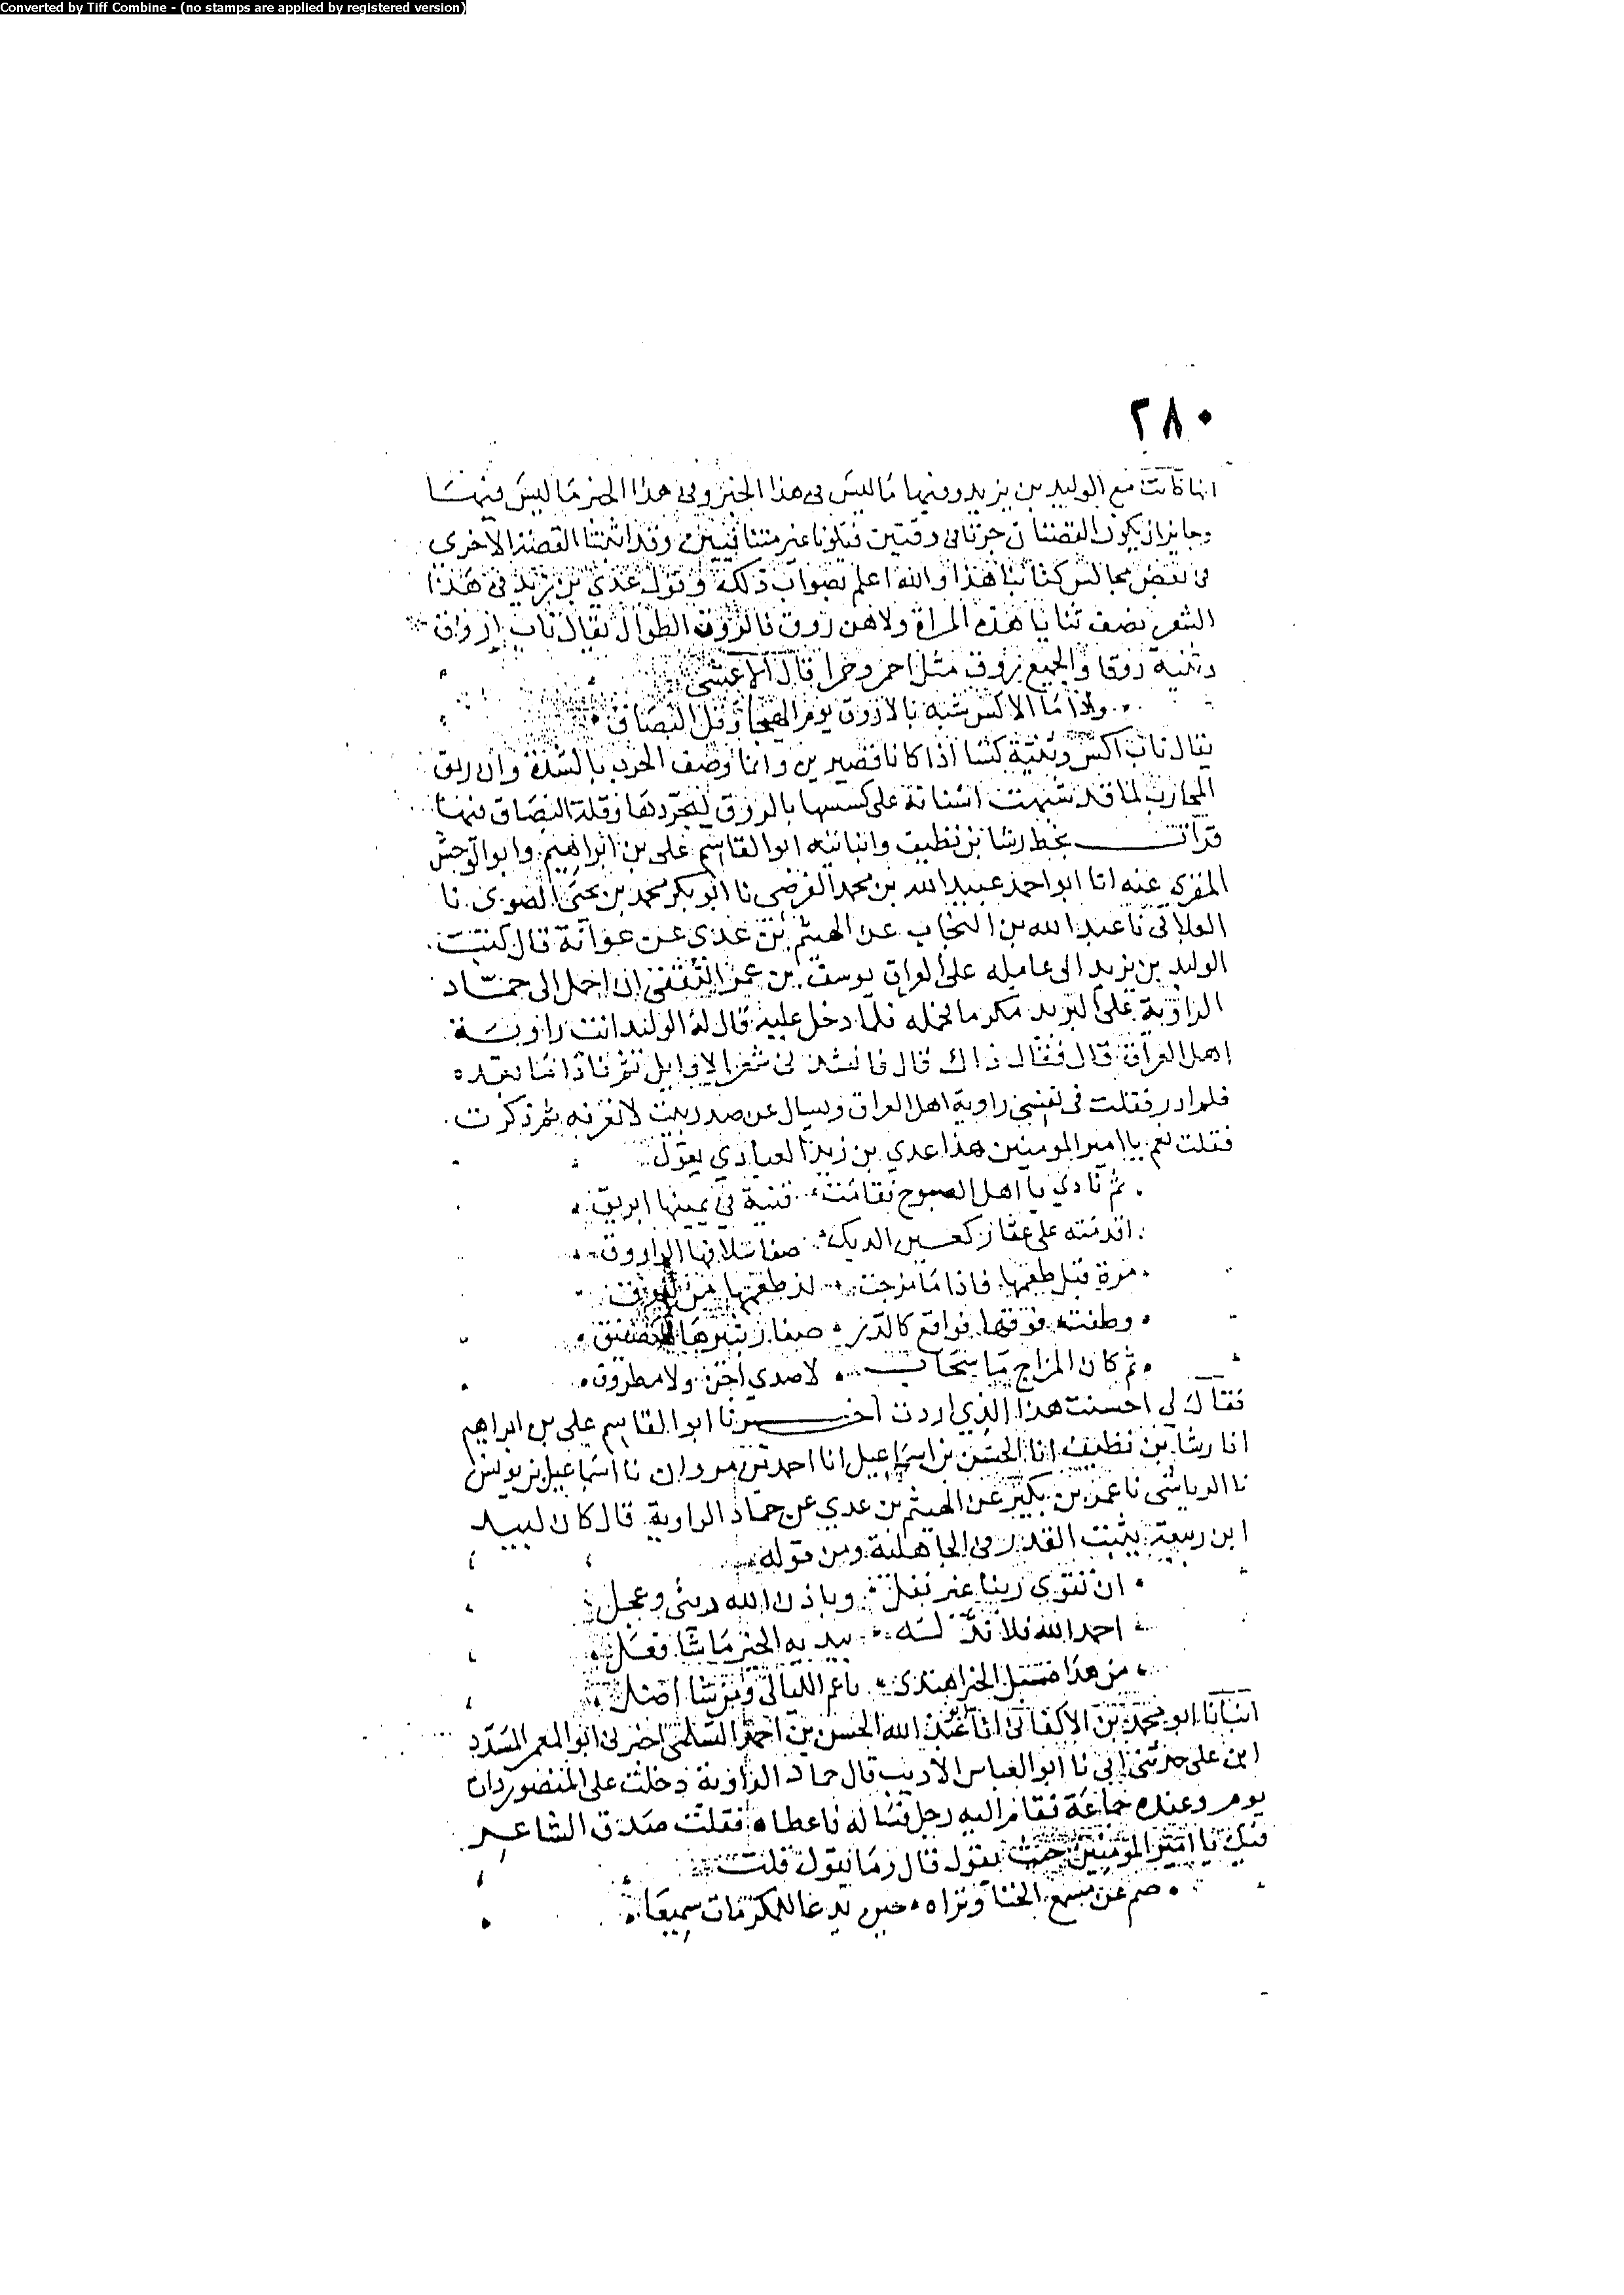 Converted by Tiff Combine - (no stamps are applied by registered version)
٢٨٠
انها كانت مع الوليد بن يزيد وفيها ما ليس في هذا الخبر وفي هذا الخبر ما ليس فيها
وجايز ان يكون القصتان جرتا في وقتين فيكونا غير متنافيتين وقد اثبتنا القصة الاخرى
في بعض مجالس كتابنا هذا والله اعلم بصواب ذلك وقول عدي بن زيد في هذا
الشعر يصف ثنايا هذه المراة ولا هن روق فالروق الطوال يقال ناب اروق
وثنية روقا والجميع روق مثل احمر وحمرا قال الاعشى
واذا ما الاكس شبه بالاروق يوم الهيجا وقل البصاق
يقال ناب اكس وثنية كسا اذا كانا قصيرين وانما وصف الحرب بالشدة وان ريق
المحارب لما قد شبهت اسنانه على كسسها بالروق لتجردها وقلة البصاق فيها
قرات بخط رشا بن نظيف وانبانيه ابو القاسم علي بن ابراهيم وابو الوحش
المقري عنه انا ابو احمد عبيد الله بن محمد الفرضي نا ابو بكر محمد بن يحيى الصولي نا
الغلابي نا عبد الله بن الضحاك عن الهيثم بن عدي عن عوانة قال كتب
الوليد بن يزيد الى عامله على العراق يوسف بن عمر الثقفي ان احمل الى حماد
الراوية على البريد مكرما فحمله فلما دخل عليه قال له الوليد انت راوية
اهل العراق قال فقال ذاك قال فانشدني شعر الاوايل ثم نادا ما بعده
فلم ادر فقلت في نفسي راوية اهل العراق ويسال عن صدر بيت لا تعرفه ثم ذكرت
فقلت نعم يا امير المومنين هذا عدي بن زيد العبادي يقول
ثم نادي يا اهل الصبوح فقامت قينة في يمينها ابريق
اقدمته على عقار كعين الديك صفا سلافها الراووق
مرة قبل طعمها فاذا ما مزجت لذ طعمها من يذوق
وطفت فوقها فواقع كالدر صغار يثيرها التصفيق
ثم كان المزاج ما سحاب لا صدي اجن ولا مطروق
فقال لي احسنت هذا الذي اردت اخبرنا ابو القاسم علي بن ابراهيم
انا رشا بن نظيف انا الحسن بن اسماعيل انا احمد بن مروان نا اسماعيل بن يونس
نا الرياشي نا عمر بن بكير عن الهيثم بن عدي عن حماد الراوية قال كان لبيد
ابن ربيعة يثبت القدر في الجاهلية ومن قوله
ان تقوى ربنا خير نفل وباذن الله ريثي وعجل
احمد الله فلا ند له بيديه الخير ما شا فعل
من هداه سبل الخير اهتدى ناعم البال ومن شا اضل
انبانا ابو محمد بن الاكفاني انا عبد الله الحسن بن احمد السلمي اخبرني ابو المعمر المسدد
ابن علي حدثني ابي نا ابو العباس الاديب قال حماد الراوية دخلت على المنصور ذات
يوم وعنده جماعة فقام اليه رجل فساله فاعطاه فقلت صدق الشاعر
فيك يا امير المومنين حيث يقول قال وما يقول قلت
صم عن مسمع الخنا وتراه حين يدعا للمكرمات سميعا